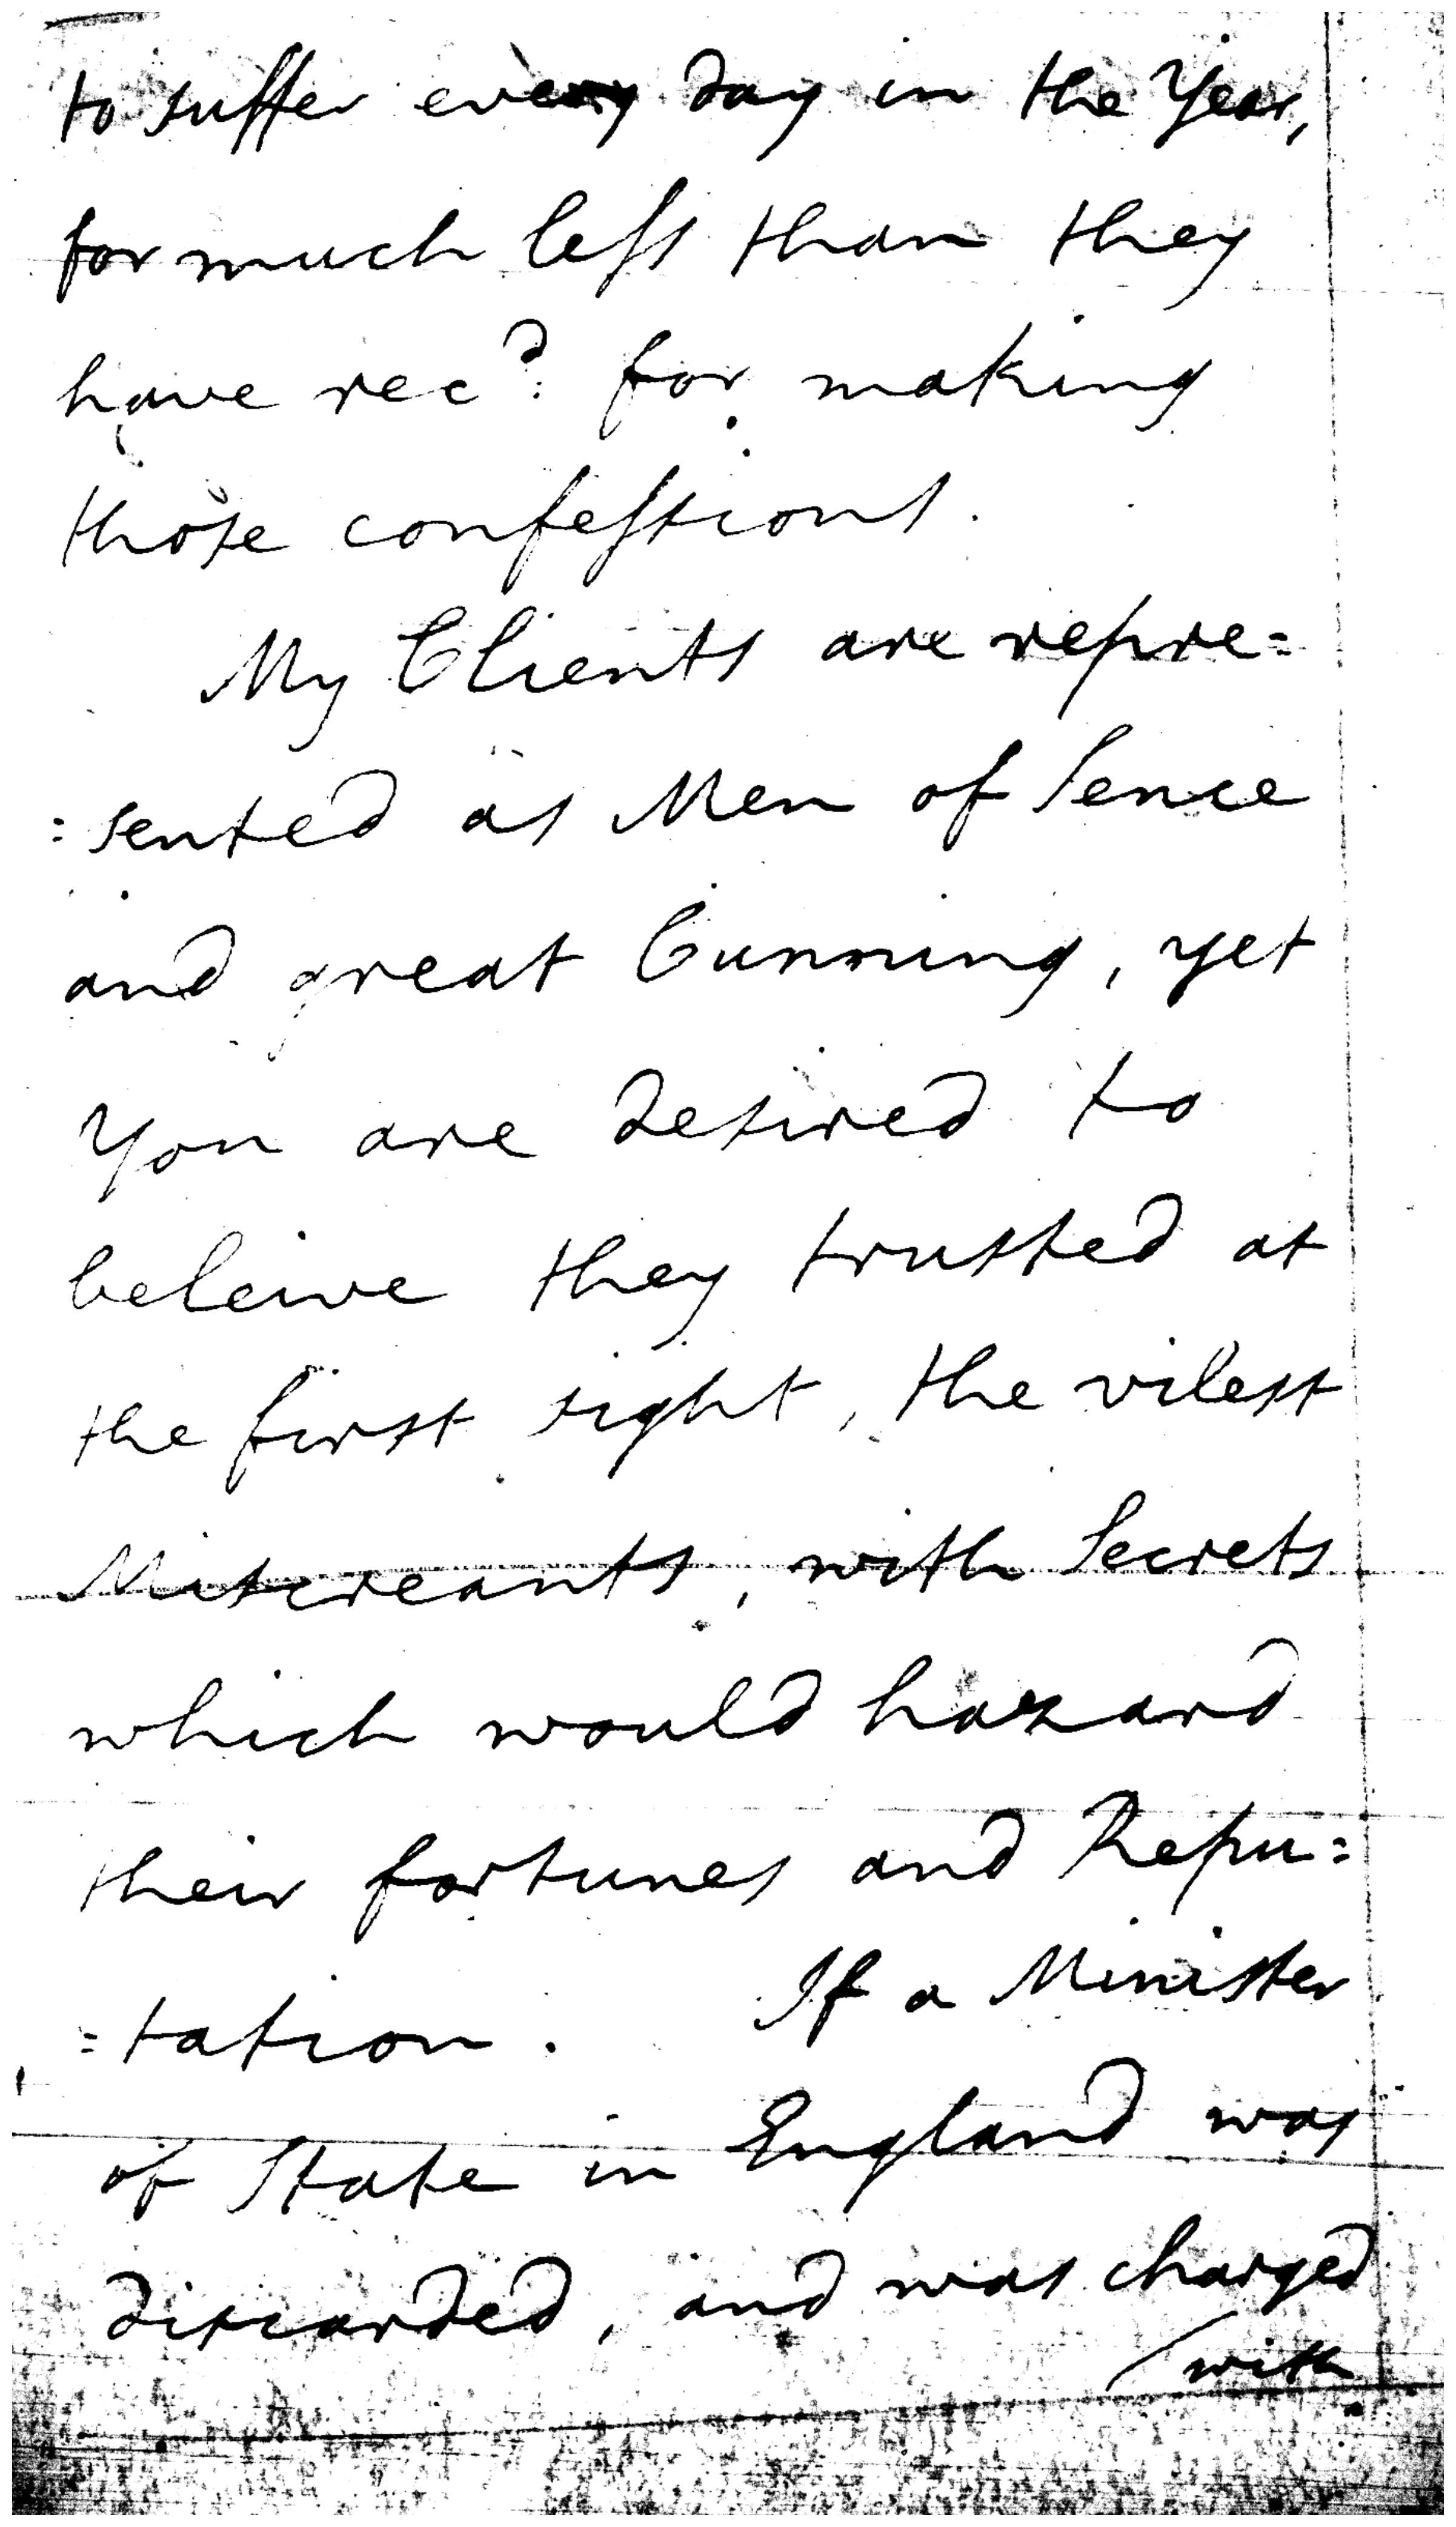 to suffer every day in the Year,
for much less than they
have rec:d for making
those confessions.
My Clients are repre=
=sented as Men of Sence
and great Cunning, yet
You are desired to
beleive they trusted at
the first sight, the vilest
Miscreants, with Secrets
which would hazard
their fortunes and Repu=
=tation. If a Minister
of State in England was
discarded, and was charged
with